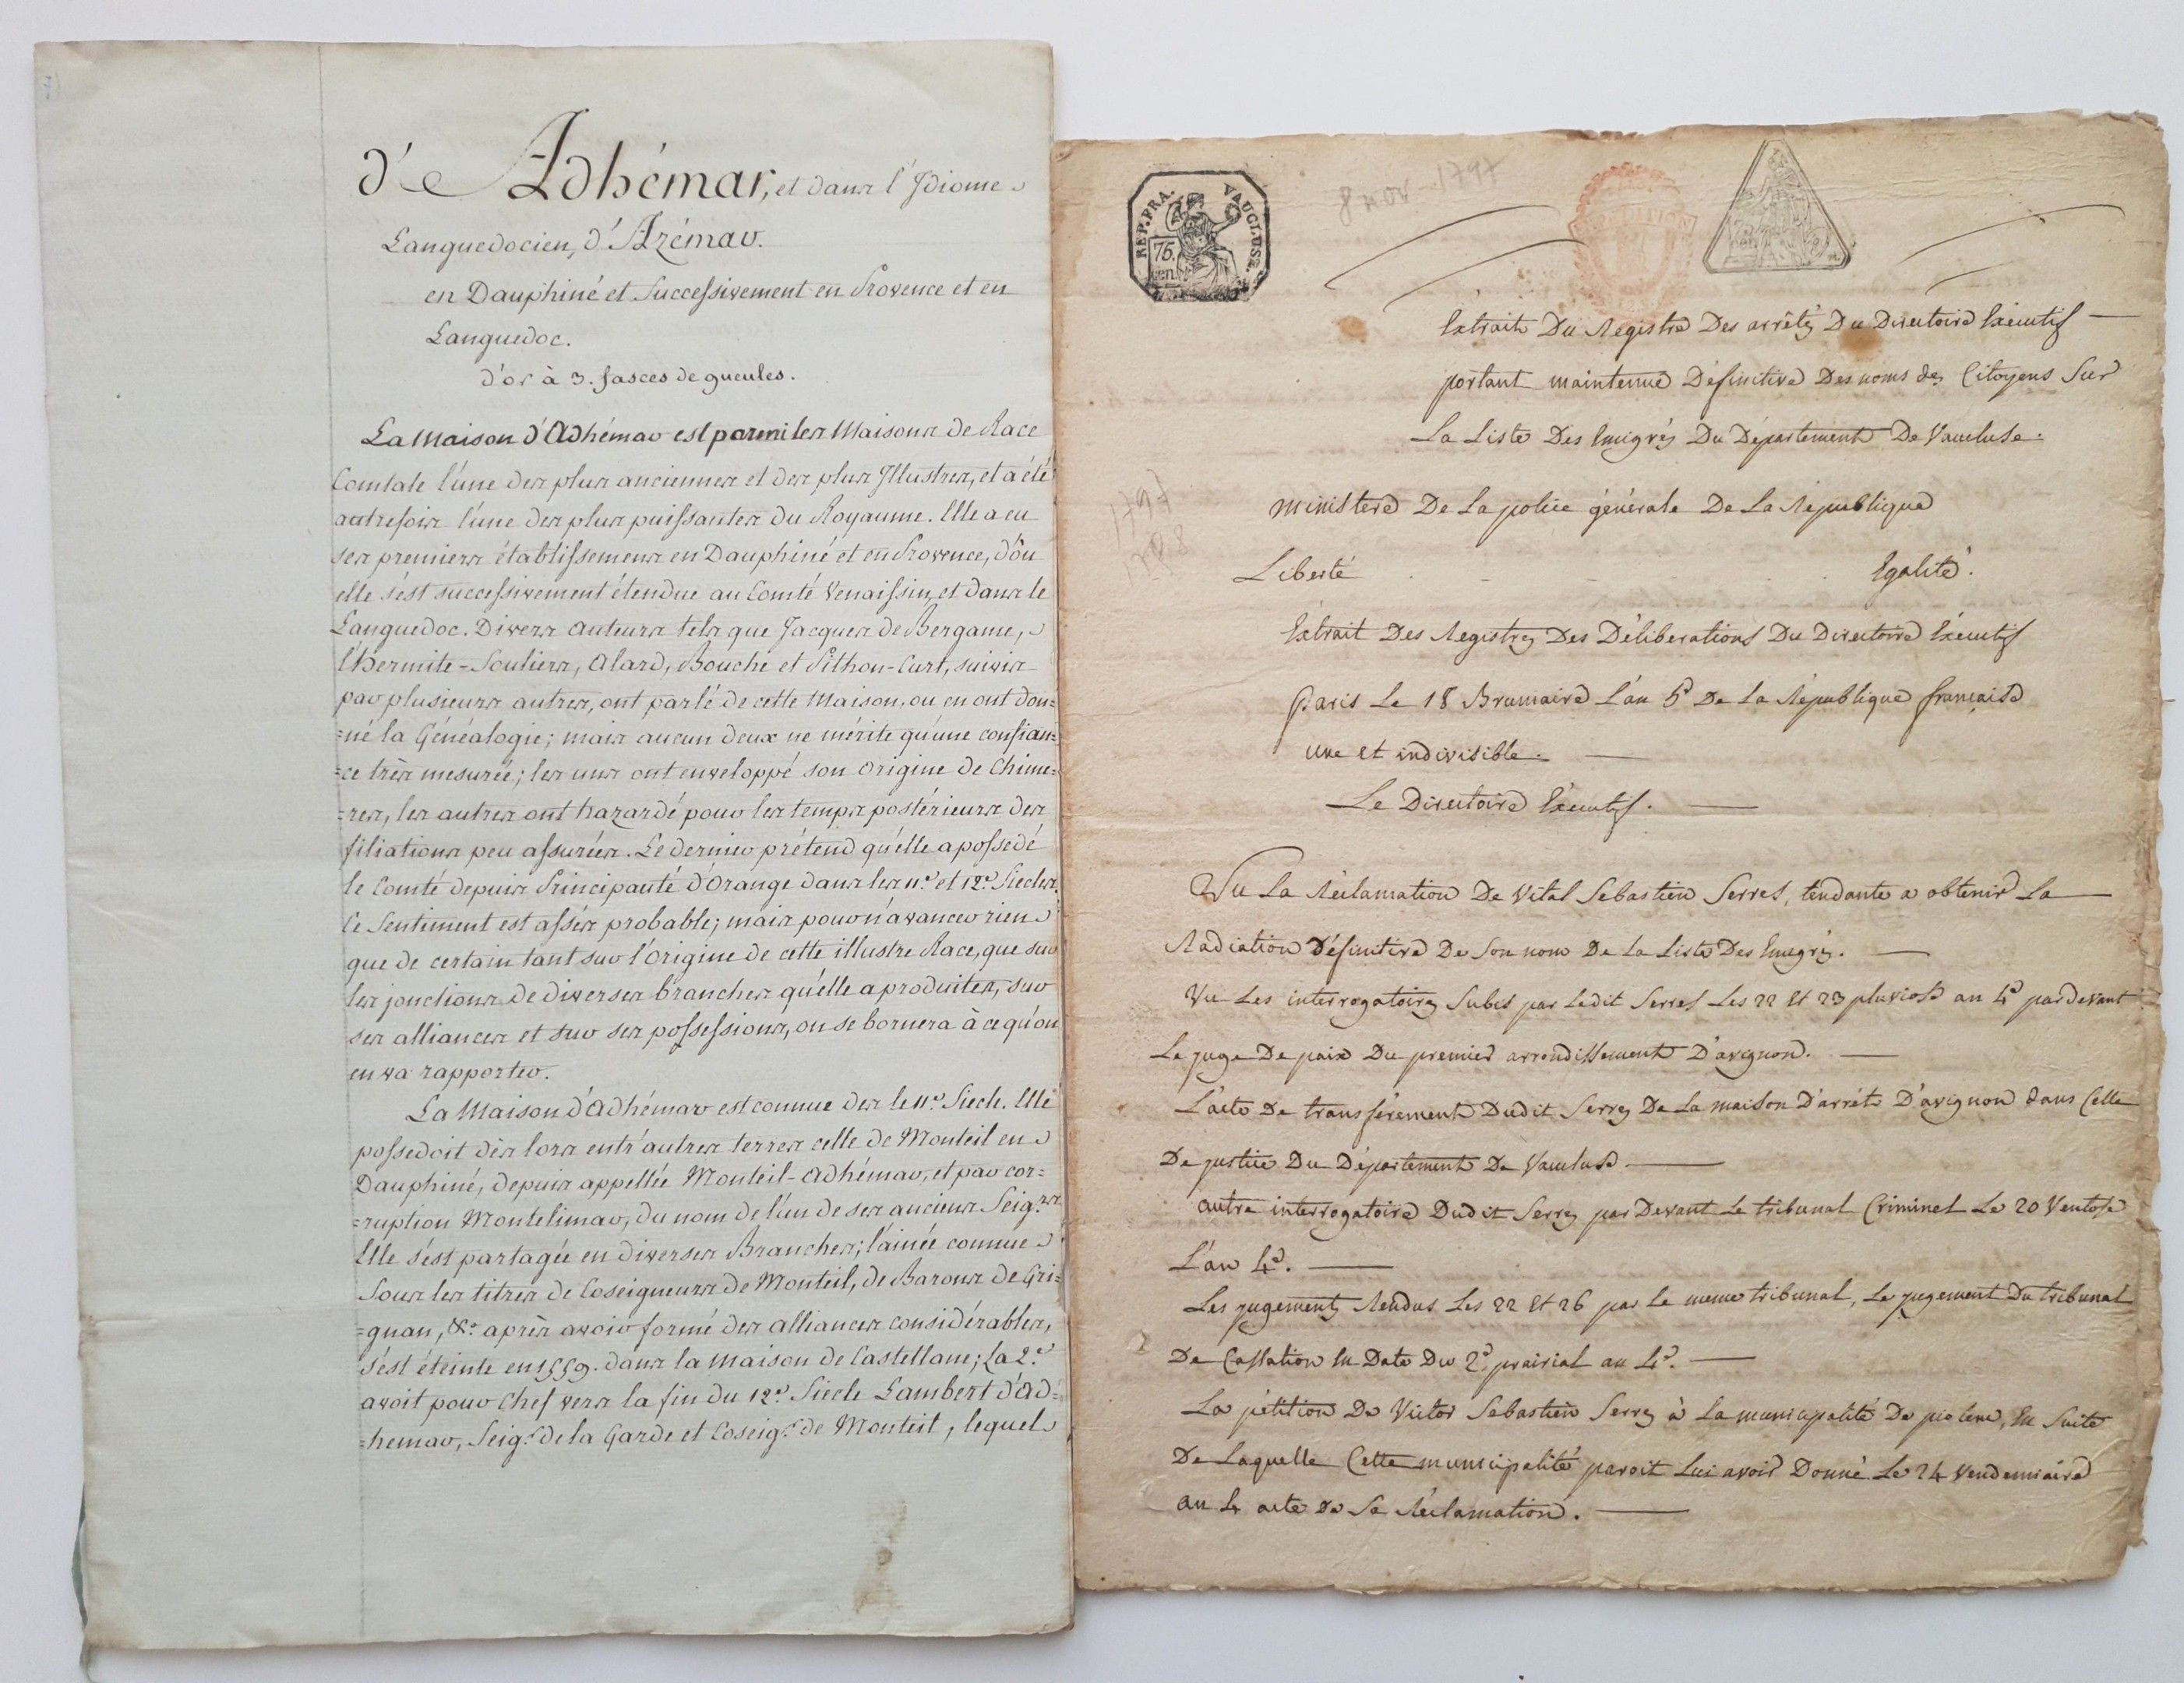 d'e Adhémar, et dans l'Jdiome
Languedocien, d'Azémar.
en Dauphiné et Successivement en Provence et en
Languedoc.
d'or à 3. fasces de gueules.
La Maison d'Adhémar est parmi les Maisons de Race
Comtale l'une des plus anciennes et des plus Jllustres, et a été
autrefois l'une des plus puissantes du Royaume. Elle a eu
ses premiers établissemens en Dauphiné et en Provence, d'ôu
elle s'ést successivement étendue au Comté Venaissin, et dans le
Languedoc. Divers Auteurs tels que Jacques de Bergame,
l'hermite-Souliers, Alard, Bouche et Pithon-Curt, suivis
par plusieurs autres, ont parlé de cette Maison, ou en ont don=
=né la Généalogie; mais aucun deux ne mérite qu'une confian=
=ce très mesurée; les uns ont enveloppé son Origine de Chime=
=res, les autres ont hazardé pour les temps postérieurs des
filiations peu assurées. Le dernier prétend qu'elle a possedé
le Comté depuis Principauté d'Orange dans les 11.e et 12.e Siecles.
Ce Sentiment est assés probable; mais pour n'avancer rien
que de certain tant sur l'Origine de cette illustre Race, que sur
les jonctions de diverses branches qu'elle a produites, sur
ses alliances et sur ses possessions, on se bornera à ce qu'on
en va rapporter.
La Maison d'Adhémar est connue des le 11.e Siecle. Elle
possedoit dès lors entr'autres terres celle de Monteil en
Dauphiné, depuis appellée Monteil-Adhémar, et par cor=
=ruption Montelimar, du nom de l'un de ses anciens Seig.rs
Elle s'ést partagée en diverses Branches; l'ainée connue
Sous les titres de Coseigneurs de Monteil, de Barons de Gri=
=gnan, &c. après avoir formé des alliances considérables,
s'est éteinte en 1559. dans la Maison de Castellane; La 2.e
avoit pour Chef vers la fin du 12.e Siecle Lambert d'Ad=
=hemar, Seig.r de la Garde et Coseig.r de Monteil, lequel
REP. FRA. VAUCLUSE.
75.
cen.
8 nov 1797
Extrait Du Registre Des arrêtés Du Directoire Exécutif
portant maintenue Définitive Des noms des Citoyens Sur
La Liste Des Emigrés Du Département De Vaucluse.
1797
ministere De La police générale De La République
Liberté Egalité.
Extrait Des Registres Des Déliberations Du Directoire Exécutif
Paris Le 18 Brumaire L'an 6e De La République française
une et indivisible.
Le Directoire Exécutif.
Vu La Réclamation De Vital Sebastien Serres, tendante a obtenir La
Radiation Définitive De Son nom De La Liste Des Emigrés.
Vu Les interrogatoires Subis par Ledit Serres Les 22 Et 23 pluviose an 4e par devant
Le juge De paix Du premier arrondissement D'avignon.
L'acte De transférement Dudit Serres De La maison D'arrêt D'avignon dans Celle
De justice Du Département De Vaucluse
autre interrogatoire Dudit Serres par Devant Le tribunal Criminel Le 20 Ventose
L'an 4e.
Les jugements Rendus Les 22 Et 26 par Le meme tribunal, Le jugement Du tribunal
De Cassation En Date Du 2e prairial an 4e.
La pétition De Victor Sebastien Serres à La municipalité De piolenc, En Suite
De Laquelle Cette municipalité paroit Lui avoir Donné Le 24 Vendemiaire
an 4 acte de Sa Réclamation.